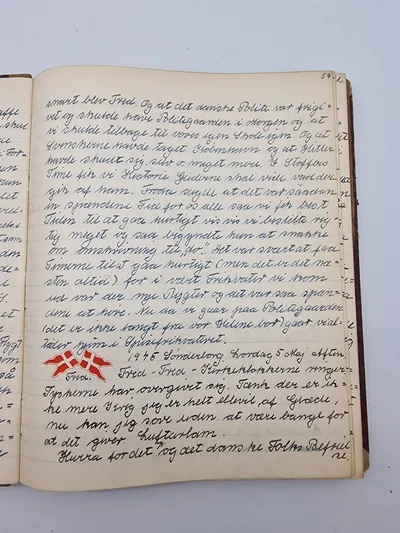 59.
snart blev Fred. Og at det danske Politi var frigi=
vet og skulde have Politigaarden i Morgen og at
vi skulde tilbage til vores egen Skole igen. Og at
Svenskerne havde taget København og at Hitler
havde skudt sig, su o meget mere. I Staffars
Time fik vi Historie Guderne skal vide
gik af ham. Frøken sagde at det var saadan
en spændende Tid for os alle saa vi fik lov
Tiden til at gaa hurtigt vis vis vi bestilte rig=
tig meget og saa begyndte hun at snakke
om Omskrivning til "do". Det var svært at faa
Timerne til at gaa hurtigt (men det er det næ=
sten altid) for i hvert Frikvater vi kom
ud var der nye Flygter og det var saa spæn=
dene at høre. Nu da vi gaar paa Politigaarden
(det er ikke langt fra vor Helene bor) gaar vi al=
tider hjem i Spisefrikvateret.
1945 Sønderborg Lørdag 5 Maj Aften
Fred - Fred - Kirkeklokkerne ringer
Fred.
Tyskerne har overgivet sig. Tænk der er ik=
ke mere Krig jeg er helt ellevil af Glæde,
nu kan jeg sove uden at være bange for
at det giver Luftarlam.
"Hurra for det" og det danske Folks Befriel
se.